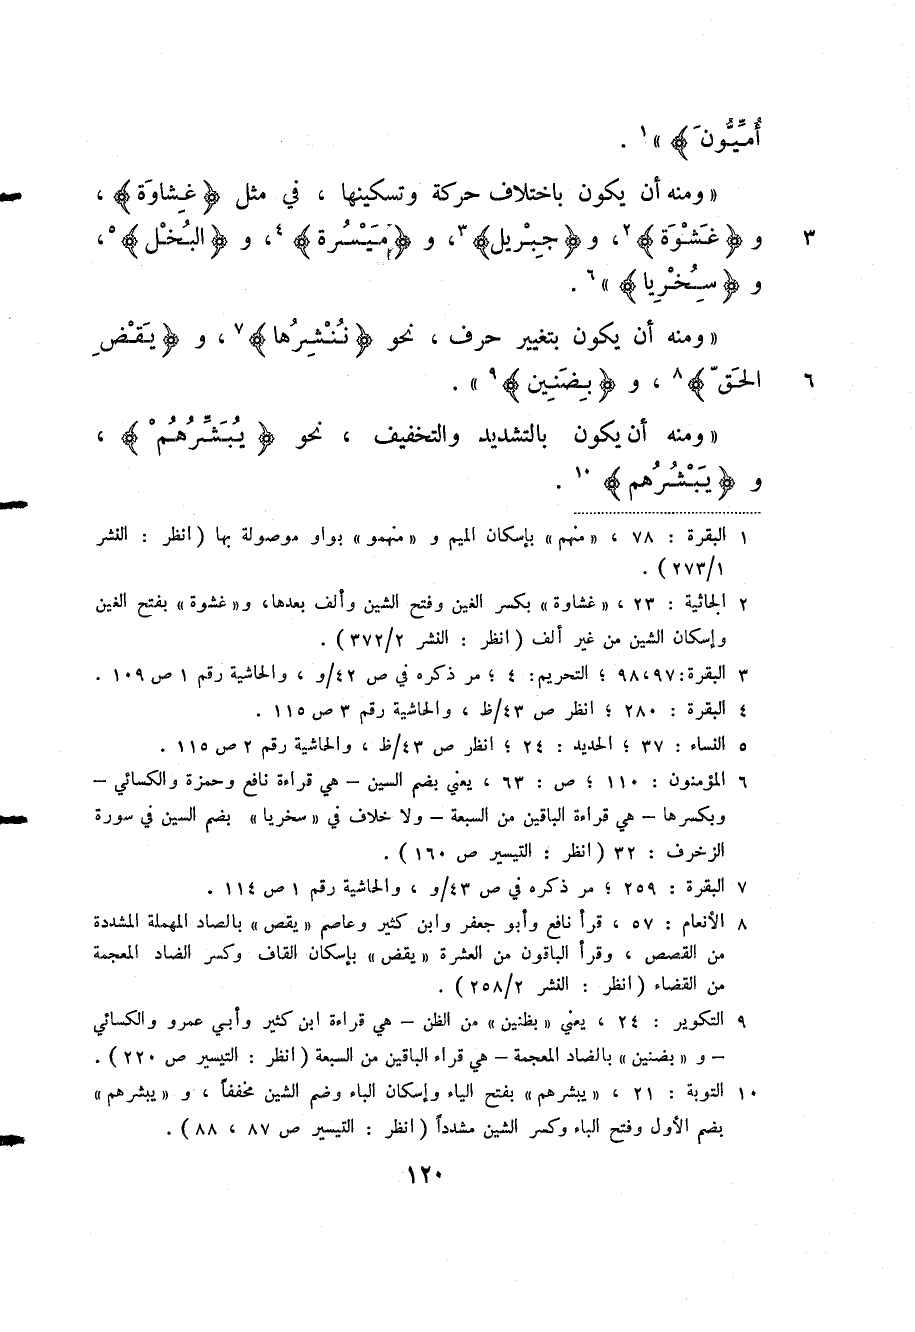 أُمِّيُّونَ﴾ »١ .
« ومنه أن يكون باختلاف حركة وتسكينها ، في مثل ﴿ غِشاوَة﴾ ،
٣ و ﴿ غَشْوَة﴾٢، و ﴿ جِبْريل﴾٣، و ﴿ مَيْسُرة﴾٤، و ﴿ البُخْل ﴾٥،
و ﴿ سِخْرِيا﴾ »٦ .
« ومنه أن يكون بتغيير حرف ، نحو ﴿ نُنْشِرُها ﴾٧ ، و ﴿ يَقْضِ
٦ الحَقّ ﴾٨ ، و ﴿ بِضَنِين ﴾٩ » .
« ومنه أن يكون بالتشديد والتخفيف ، نحو ﴿ يُبَشِّرُهُمْ ﴾ ،
و ﴿ يَبْشُرُهم﴾١٠ .
١ البقرة : ٧٨ ، « منهم » بإسكان الميم و « منهمو » بواو موصولة بها ( انظر : النشر
٢٧٣/١ ) .
٢ الجاثية : ٢٣ ، « غشاوة » بكسر الغين وفتح الشين وألف بعدها، و« غشوة » بفتح الغين
وإسكان الشين من غير ألف ( انظر : النشر ٣٧٢/٢ ) .
٣ البقرة: ٩٧، ٩٨ ؛ التحريم: ٤ ؛ مر ذكره في ص ٤٢/و ، والحاشية رقم ١ ص ١٠٩ .
٤ البقرة : ٢٨٠ ؛ انظر ص ٤٣/ظ ، والحاشية رقم ٣ ص ١١٥ .
٥ النساء : ٣٧ ؛ الحديد : ٢٤ ؛ انظر ص ٤٣/ظ ، والحاشية رقم ٢ ص ١١٥ .
٦ المؤمنون : ١١٠ ؛ ص : ٦٣ ، يعني بضم السين – هي قراءة نافع وحمزة والكسائي –
وبكسرها – هي قراءة الباقين من السبعة – ولا خلاف في « سخريا » بضم السين في سورة
الزخرف : ٣٢ ( انظر : التيسير ص ١٦٠ ) .
٧ البقرة : ٢٥٩ ؛ مر ذكره في ص ٤٣/و ، والحاشية رقم ١ ص ١١٤ .
٨ الأنعام : ٥٧ ، قرأ نافع وأبو جعفر وابن كثير وعاصم « يقص » بالصاد المهملة المشددة
من القصص ، وقرأ الباقون من العشرة « يقض » بإسكان القاف وكسر الضاد المعجمة
من القضاء ( انظر : النشر ٢٥٨/٢ ) .
٩ التكوير : ٢٤ ، يعني « بظنين » من الظن – هي قراءة ابن كثير وأبي عمرو والكسائي
– و « بضنين » بالضاد المعجمة – هي قراء الباقين من السبعة ( انظر : التيسير ص ٢٢٠ ) .
١٠ التوبة : ٢١ ، « يبشرهم » بفتح الياء وإسكان الباء وضم الشين مخففاً ، و « يبشرهم »
بضم الأول وفتح الباء وكسر الشين مشدداً ( انظر : التيسير ص ٨٧ ، ٨٨ ) .
١٢٠